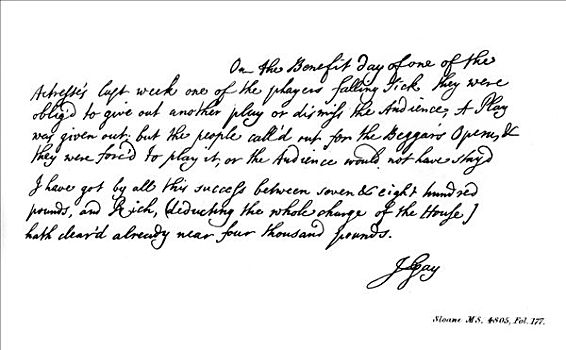 On the Benefit day of one of the
Actresse's last week one of the players falling sick they were
oblig'd to give out another play or dismiss the Audience, A Play
was given out, but the people call'd out for the Beggar's Opera, &
they were forc'd to play it, or the Audience would not have stay'd
I have got by all this success between seven & eight hundred
pounds, and Rich, (deducting the whole charge of the House)
hath clear'd already near four thousand pounds.
J Gay
Sloane MS. 4805, Fol. 177.